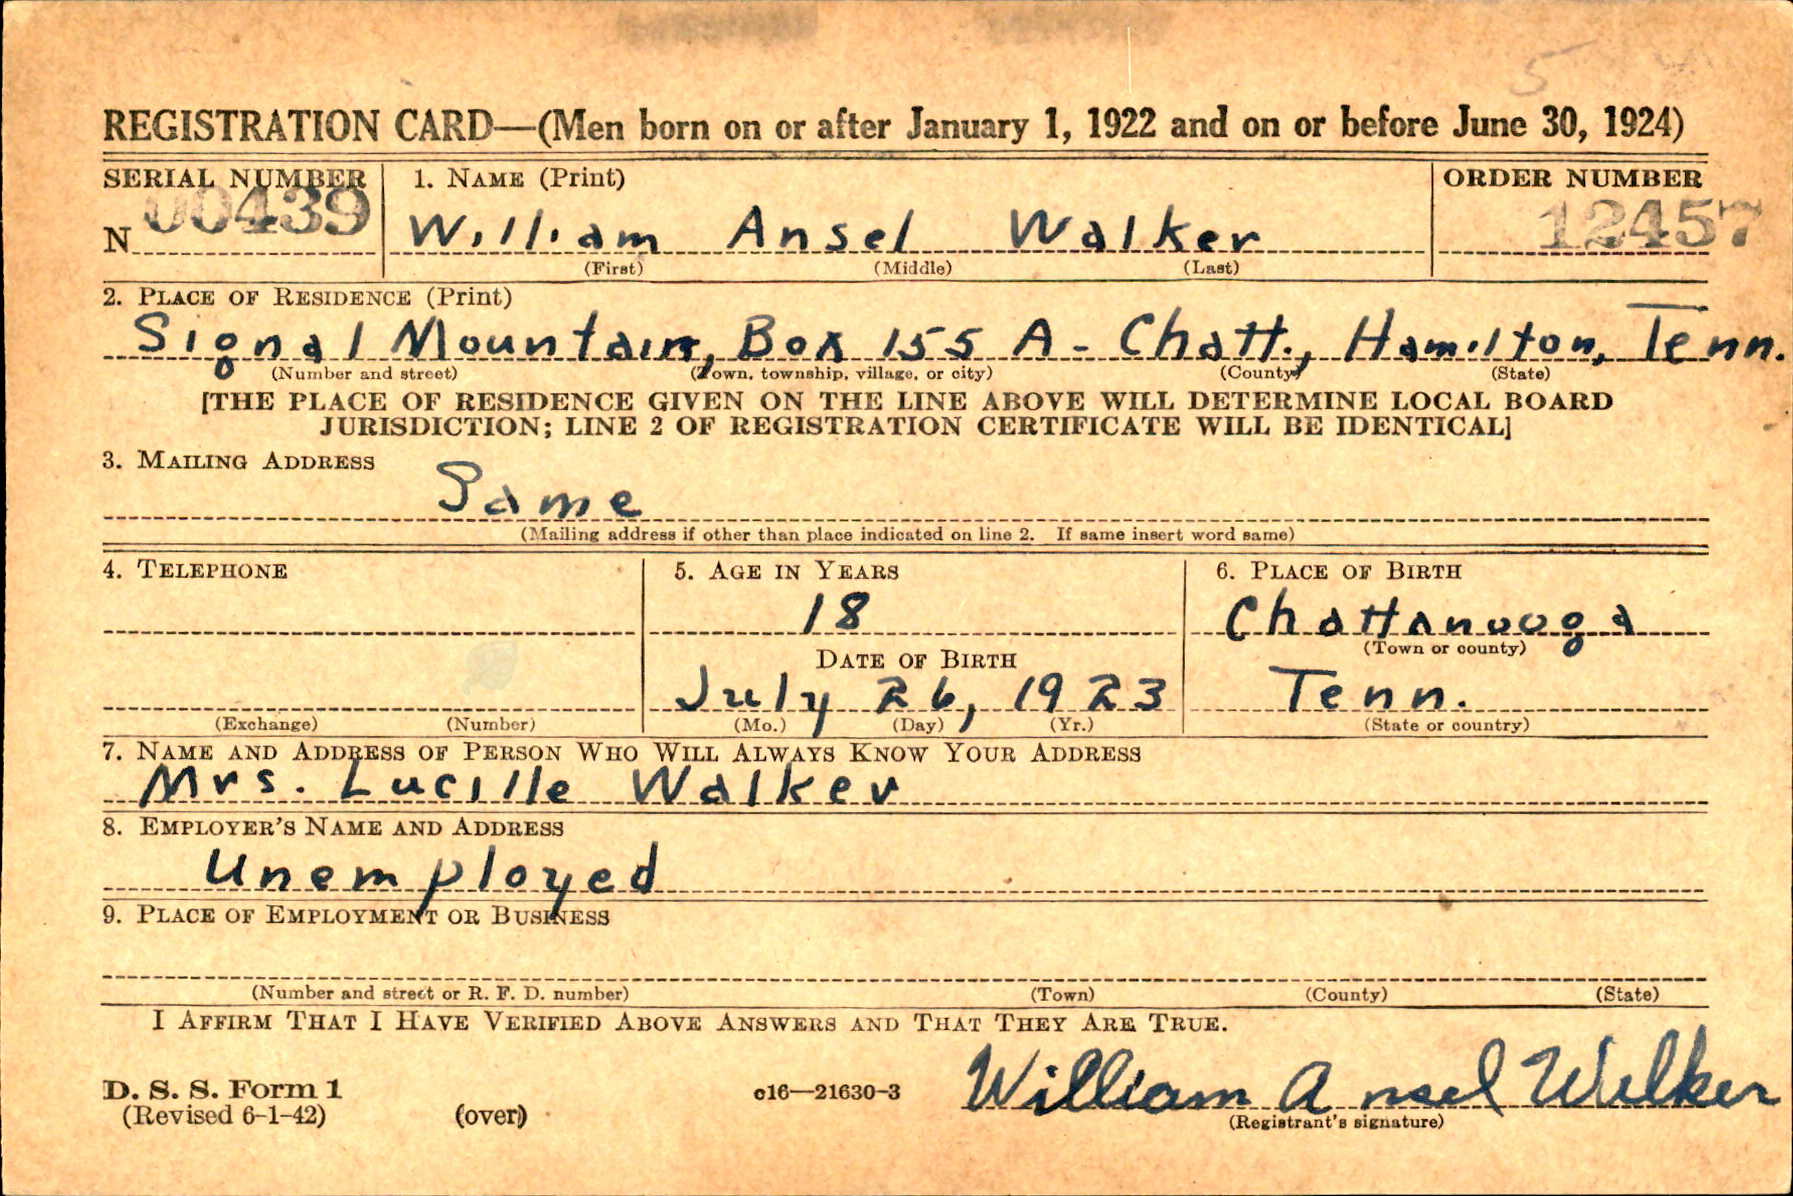 5
REGISTRATION CARD—(Men born on or after January 1, 1922 and on or before June 30, 1924)
SERIAL NUMBER 1. NAME (Print) ORDER NUMBER
N 00439 William Ansel Walker 12457
(First) (Middle) (Last)
2. PLACE OF RESIDENCE (Print)
Signal Mountain, Box 155 A - Chatt., Hamilton, Tenn.
(Number and street) (Town, township, village, or city) (County) (State)
[THE PLACE OF RESIDENCE GIVEN ON THE LINE ABOVE WILL DETERMINE LOCAL BOARD
JURISDICTION; LINE 2 OF REGISTRATION CERTIFICATE WILL BE IDENTICAL]
3. MAILING ADDRESS
Same
(Mailing address if other than place indicated on line 2. If same insert word same)
4. TELEPHONE 5. AGE IN YEARS 6. PLACE OF BIRTH
18 Chattanooga
DATE OF BIRTH (Town or county)
July 26, 1923 Tenn.
(Exchange) (Number) (Mo.) (Day) (Yr.) (State or country)
7. NAME AND ADDRESS OF PERSON WHO WILL ALWAYS KNOW YOUR ADDRESS
Mrs. Lucille Walker
8. EMPLOYER'S NAME AND ADDRESS
Unemployed
9. PLACE OF EMPLOYMENT OR BUSINESS
(Number and street or R. F. D. number) (Town) (County) (State)
I AFFIRM THAT I HAVE VERIFIED ABOVE ANSWERS AND THAT THEY ARE TRUE.
D. S. S. Form 1 c16—21630-3 William Ansel Walker
(Revised 6-1-42) (over) (Registrant's signature)